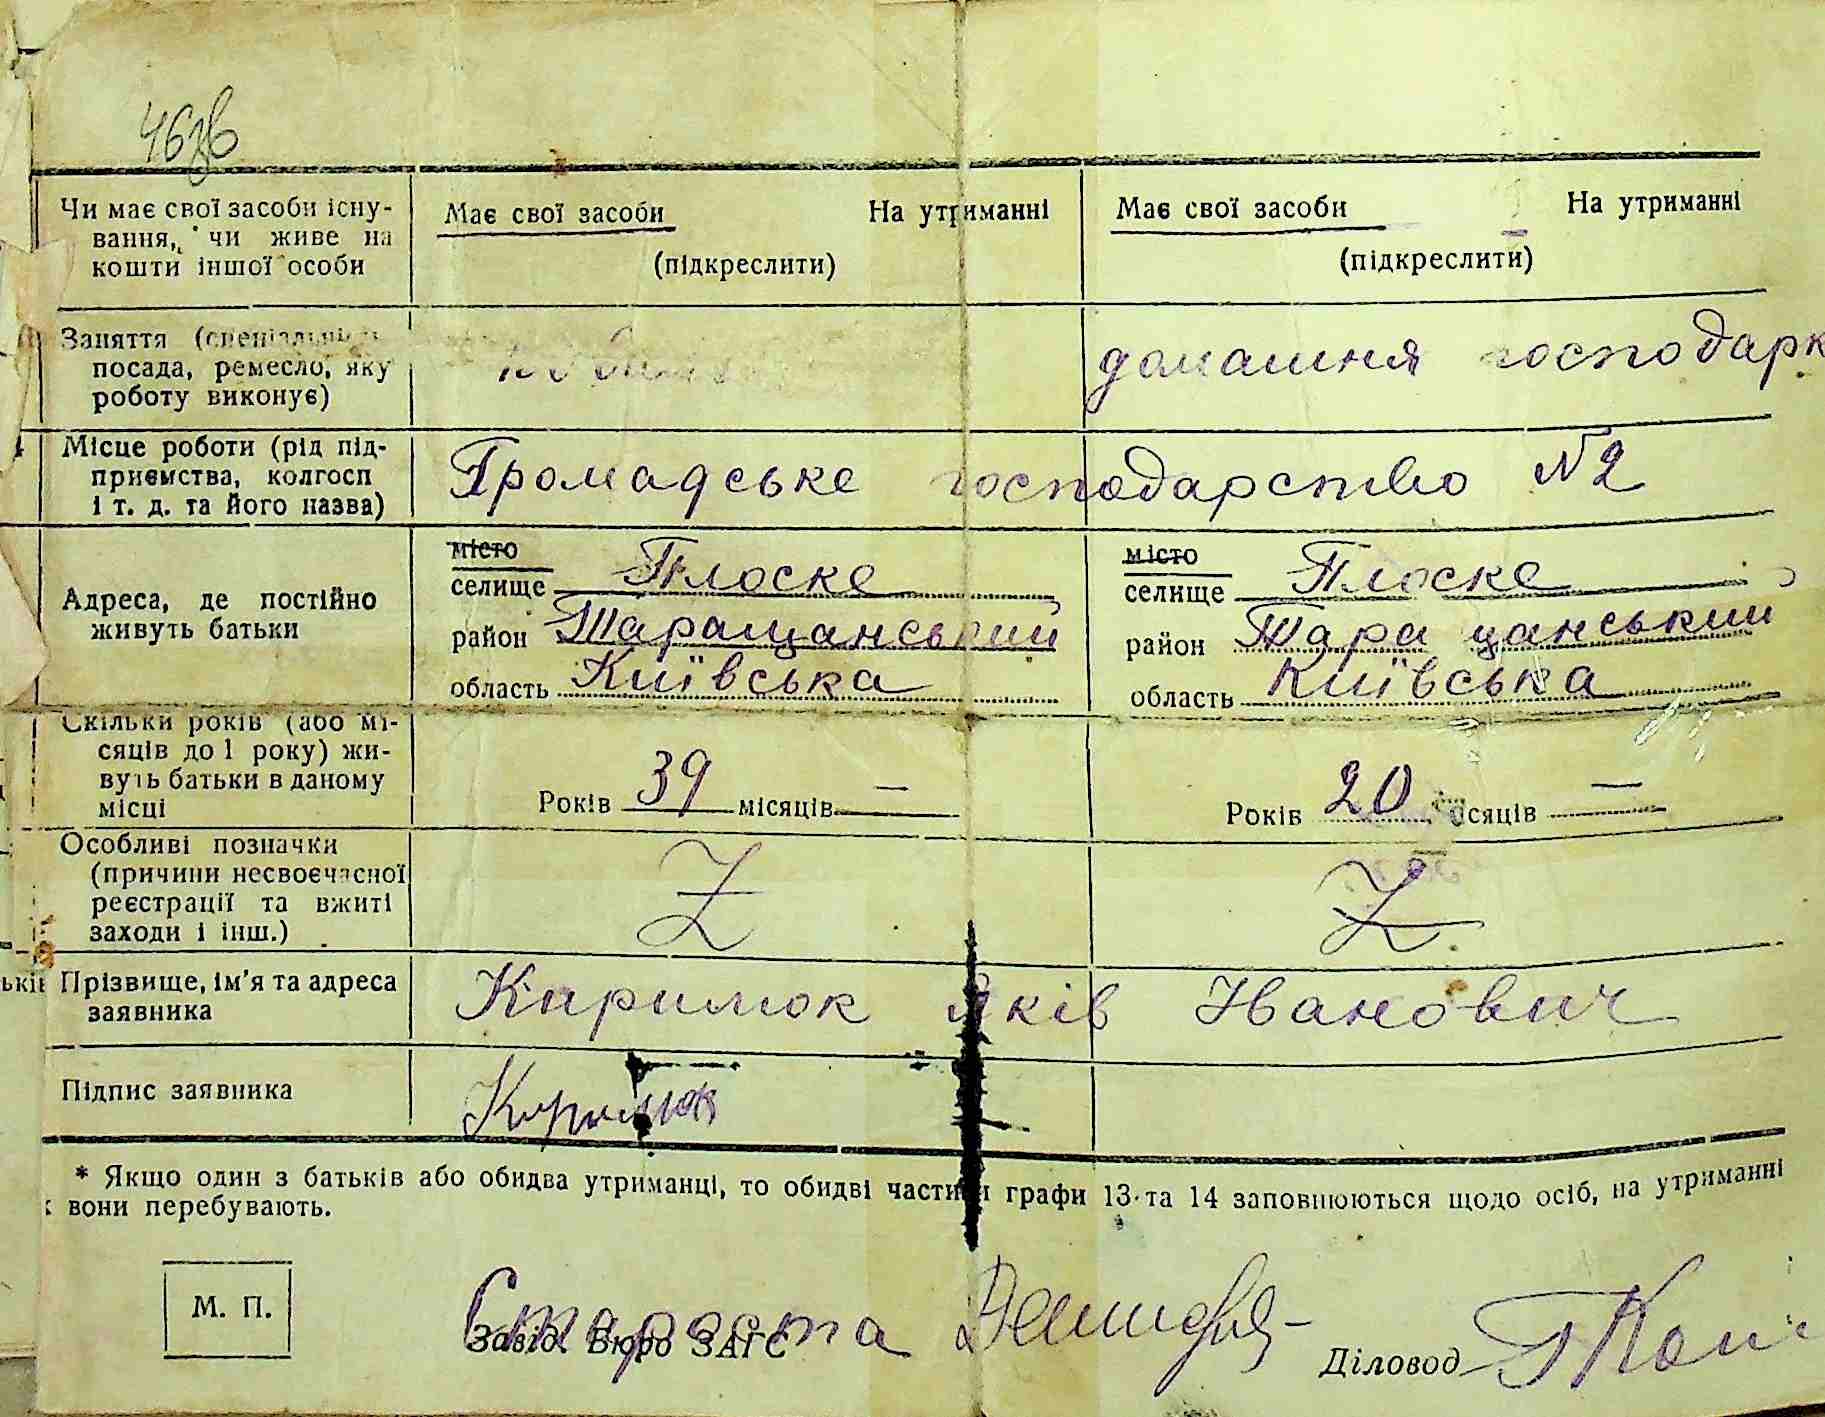 Чи має свої засоби існу-
вання, чи живе на
кошти іншої особи
Має свої засоби На утриманні
(підкреслити)
Має свої засоби На утриманні
(підкреслити)
Заняття (спеціальність,
посада, ремесло, яку
роботу виконує)
домашня господарк
Місце роботи (рід під-
приємства, колгосп
і т. д. та його назва)
Громадське господарство №2
Адреса, де постійно
живуть батьки
місто
селище Плоске
район Таращанський
область Київська
місто
селище Плоске
район Таращанський
область Київська
Скільки років (або мі-
сяців до 1 року) жи-
вуть батьки в даному
місці
Років 39 місяців —
Років 20 місяців —
Особливі позначки
(причини несвоєчасної
реєстрації та вжиті
заходи і інш.)
Z
Z
ьків
Прізвище, ім'я та адреса
заявника
Киримок Яків Іванович
Підпис заявника
* Якщо один з батьків або обидва утриманці, то обидві частини графи 13 та 14 заповнюються щодо осіб, на утриманні
х вони перебувають.
М. П.
Староста
Завід. Бюро ЗАГС
Діловод